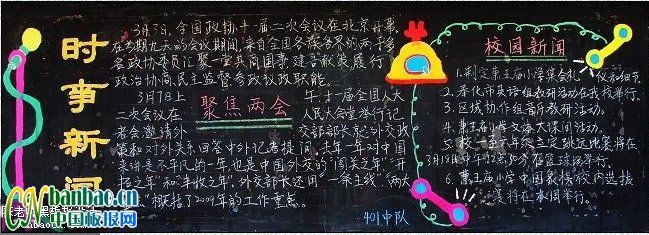 时事新河
3月3日,全国政协十一届二次会议在北京开幕
在为期九天的会议期间,来自全国各族各界的两千多
名政协委员汇聚一堂共商国是建言献策履行
政治协商民主监督参政议政职能。
3月7日上
聚焦两会
午十一届全国人大
二次会议在
人民大会堂举行记
者会邀请外
交部部长就外交政
策和对外关系回答中外记者提问,去年一年对中国
来讲是不平凡的一年也是中国外交的
开
拓之年"和"丰收之年"外交部长还用"一条主线""两大
概括了2009年的工作重点。
校园新闻
1.制定惠王庙小学集会礼仪
细节
2.奉化市英语组教研活动在我校举行。
3.区域协作组音乐教研活动。
4.惠王庙小学文体大课间活动。
5.校
六年级立定跳远比赛将在
3月18日中午12点50分在篮球场举行。
6.惠王庙小学中国象棋校内选拔
赛将在本周举行。
401中队
CN banbao.cn
中国板报网